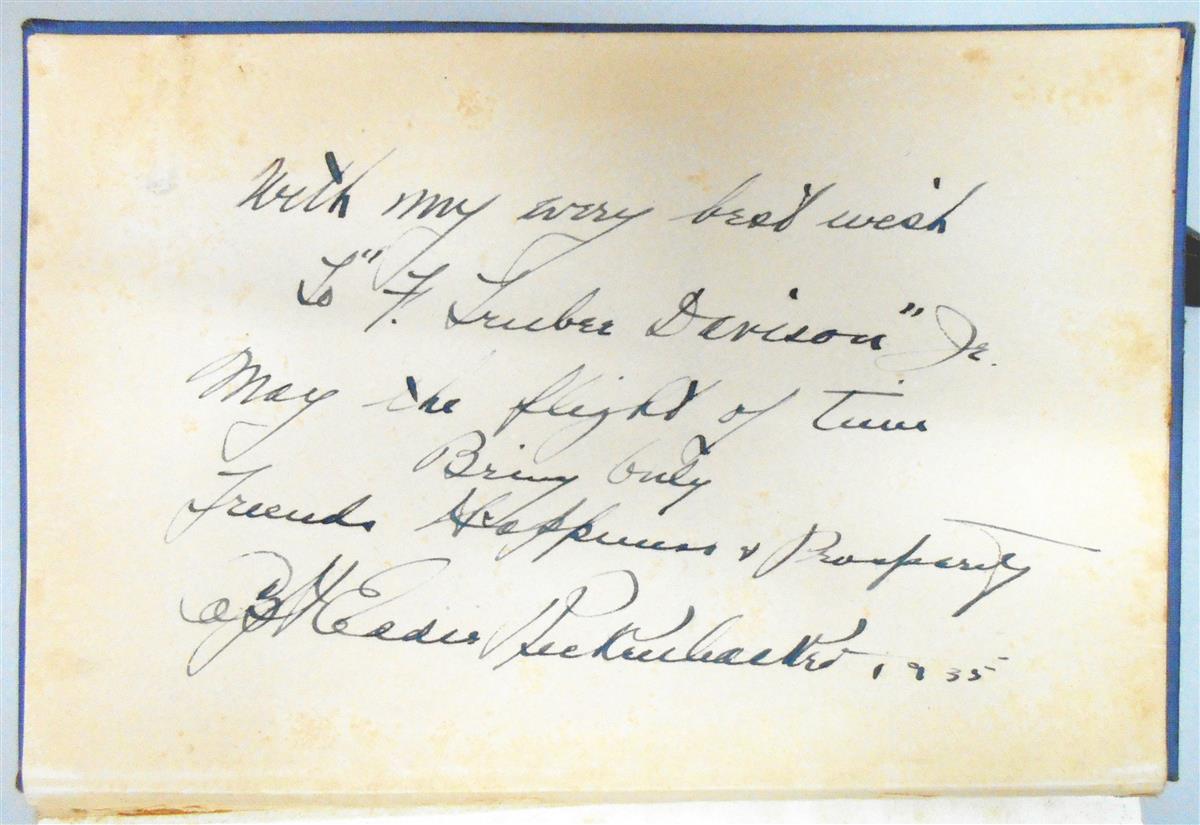 With my every best wish
To "F. Trubee Davison" Jr.
May the flight of time
Bring Only
Friends Happiness & Prosperity
By Eddie Rickenbacker 1935